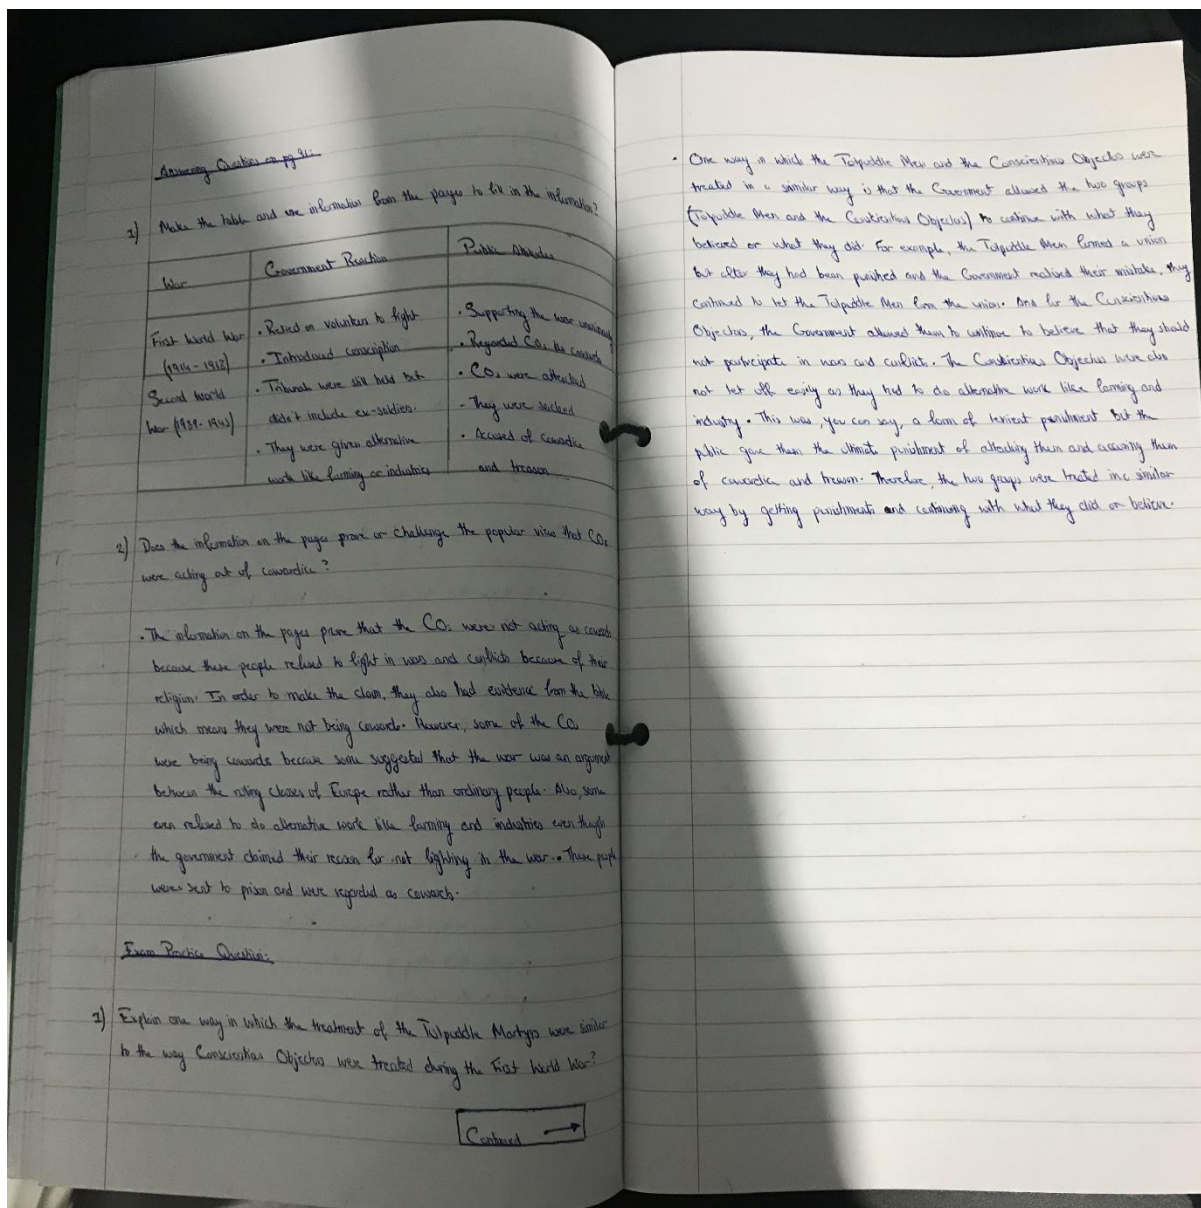 Answering Question on pg 91:
1) Make the table and use information from the pages to fill in the information?
War
Government Reaction
Public Attitudes
First World War
(1914-1918)
• Relied on volunteers to fight
• Introduced conscription
• Supporting the war
• Regarded COs as cowards
Second World
War (1939-1945)
• Tribunals were still held but
didn't include ex-soldiers.
• They were given alternative
work like farming or industries
• COs were attacked
- They were sacked
• Accused of cowardice
and treason
2) Does the information on the pages prove or challenge the popular view that COs
were acting out of cowardice?
• The information on the pages prove that the COs were not acting as cowards
because these people refused to fight in wars and conflicts because of their
religion. In order to make the claim, they also had evidence from the bible
which means they were not being cowards. However, some of the COs
were being cowards because some suggested that the war was an argument
between the ruling classes of Europe rather than ordinary people. Also, some
even refused to do alternative work like farming and industries even though
the government claimed their reason for not fighting in the war. These people
were sent to prison and were regarded as cowards.
Exam Practice Question:
1) Explain one way in which the treatment of the Tolpuddle Martyrs were similar
to the way Conscientious Objectors were treated during the First World War?
Continued →
• One way in which the Tolpuddle Men and the Conscientious Objectors were
treated in a similar way is that the Government allowed the two groups
(Tolpuddle Men and the Conscientious Objectors) to continue with what they
believed or what they did. For example, the Tolpuddle Men formed a union
but after they had been punished and the Government realised their mistake, they
continued to let the Tolpuddle Men form the union. And for the Conscientious
Objectors, the Government allowed them to continue to believe that they should
not participate in wars and conflicts. The Conscientious Objectors were also
not let off easily as they had to do alternative work like farming and
industry. This was, you can say, a form of lenient punishment but the
public gave them the ultimate punishment of attacking them and accusing them
of cowardice and treason. Therefore, the two groups were treated in a similar
way by getting punishments and continuing with what they did or believe.